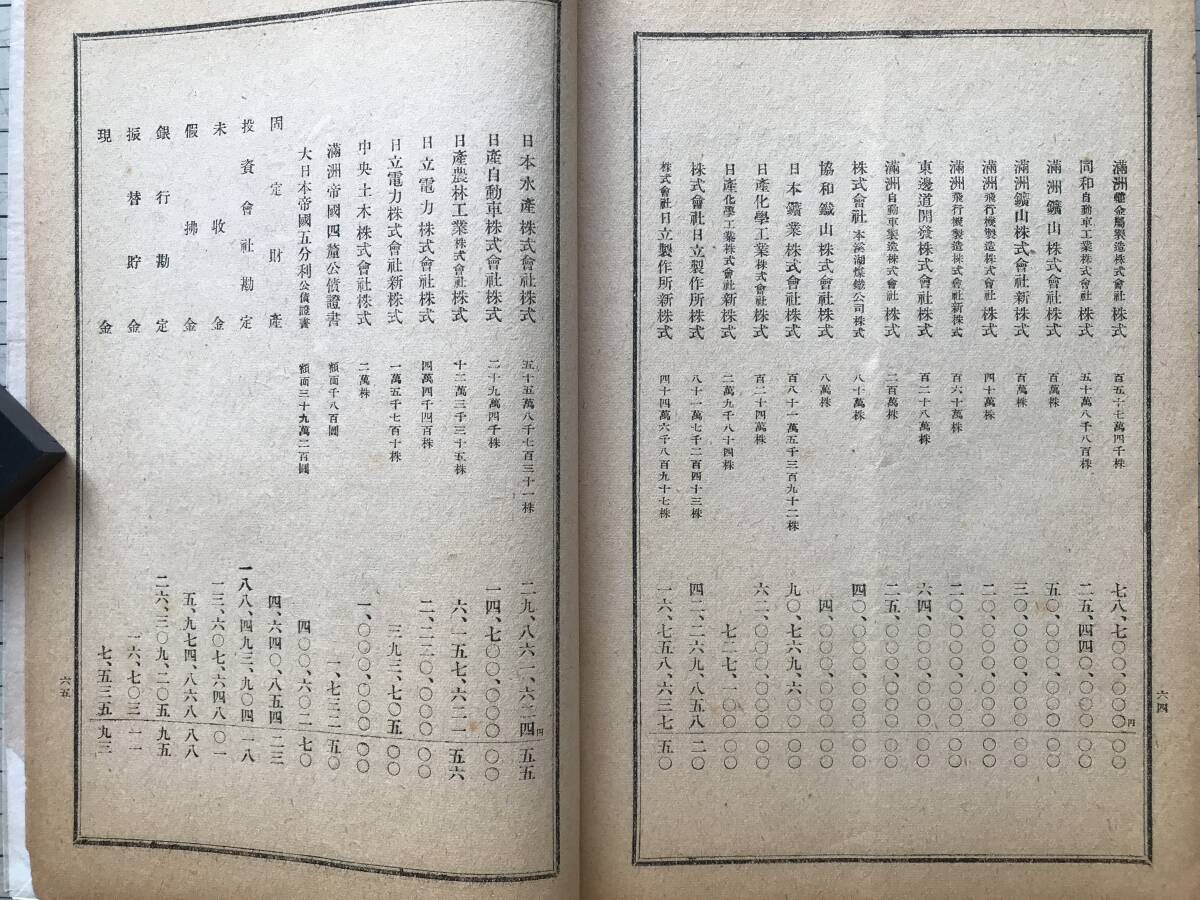 滿洲輕金屬製造株式會社株式 百五十七萬四千株 七八、七〇〇、〇〇〇円〇〇
同和自動車工業株式會社株式 五十萬八千八百株 二五、四四〇、〇〇〇〇〇
滿洲鑛山株式會社株式 百萬株 五〇、〇〇〇、〇〇〇〇〇
滿洲鑛山株式會社新株式 百萬株 三〇、〇〇〇、〇〇〇〇〇
滿洲飛行機製造株式會社株式 四十萬株 二〇、〇〇〇、〇〇〇〇〇
滿洲飛行機製造株式會社新株式 百六十萬株 二〇、〇〇〇、〇〇〇〇〇
東邊道開發株式會社株式 百二十八萬株 六四、〇〇〇、〇〇〇〇〇
滿洲自動車製造株式會社株式 二百萬株 二五、〇〇〇、〇〇〇〇〇
株式會社本溪湖煤鐵公司株式 八十萬株 四〇、〇〇〇、〇〇〇〇〇
協和鐵山株式會社株式 八萬株 四、〇〇〇、〇〇〇〇〇
日本鑛業株式會社株式 百八十一萬五千三百九十二株 九〇、七六九、六〇〇〇〇
日產化學工業株式會社株式 百二十四萬株 六二、〇〇〇、〇〇〇〇〇
日產化學工業株式會社新株式 二萬九千八十四株 七二七、一〇〇〇〇
株式會社日立製作所株式 八十一萬七千二百四十三株 四二、二六九、八五八二〇
株式會社日立製作所新株式 四十四萬六千八百九十七株 一六、七五八、六三七五〇
六四
日本水產株式會社株式 五十五萬八千七百三十一株 二九、八六一、六二四円五五
日產自動車株式會社株式 二十九萬四千株 一四、七〇〇、〇〇〇〇〇
日產農林工業株式會社株式 十二萬三千三十五株 六、一五七、六二一五六
日立電力株式會社株式 四萬四千四百株 二、二二〇、〇〇〇〇〇
日立電力株式會社新株式 一萬五千七百十株 三九三、七〇五〇〇
中央土木株式會社株式 二萬株 一、〇〇〇、〇〇〇〇〇
滿洲帝國四釐公債證書 額面千八百圓 一、七三二五〇
大日本帝國五分利公債證書 額面三十九萬二百圓 四〇〇、六〇二七〇
固定財產 四、六四〇、八五四二三
投資會社勘定 一八八、四九三、九〇四一八
未收金 一三、六〇七、六四八〇一
假拂金 五、九七四、八六八八八
銀行勘定 二六、三〇九、二〇五九五
振替貯金 一六、七〇三一一
現金 七、五三五九三
六五